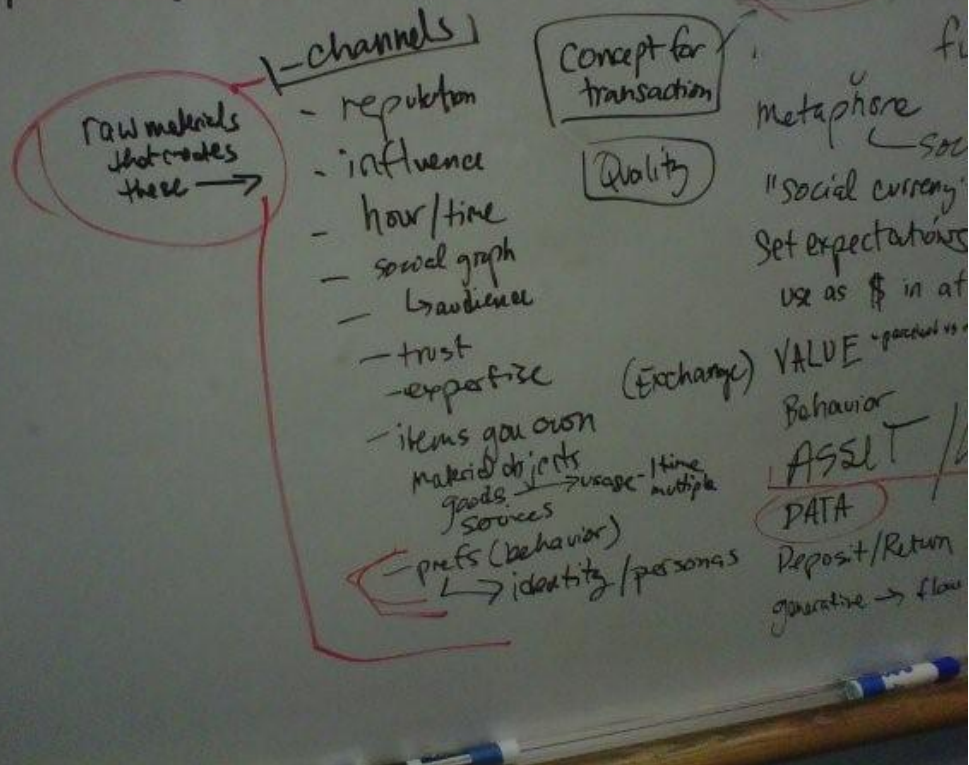 raw materials
that creates
these →
- channels
- reputation
- influence
- hour/time
- social graph
- ↳ audience
- trust
- expertise
- items you own
material objects
goods → usage - 1 time
multiple
services
- prefs (behavior)
↳ identity/personas
Concept for
transaction
Quality
(Exchange)
metaphore
"social curreny"
Set expectations
use as $ in
VALUE
Behavior
ASSET /
DATA
Deposit/Return
generative → flow